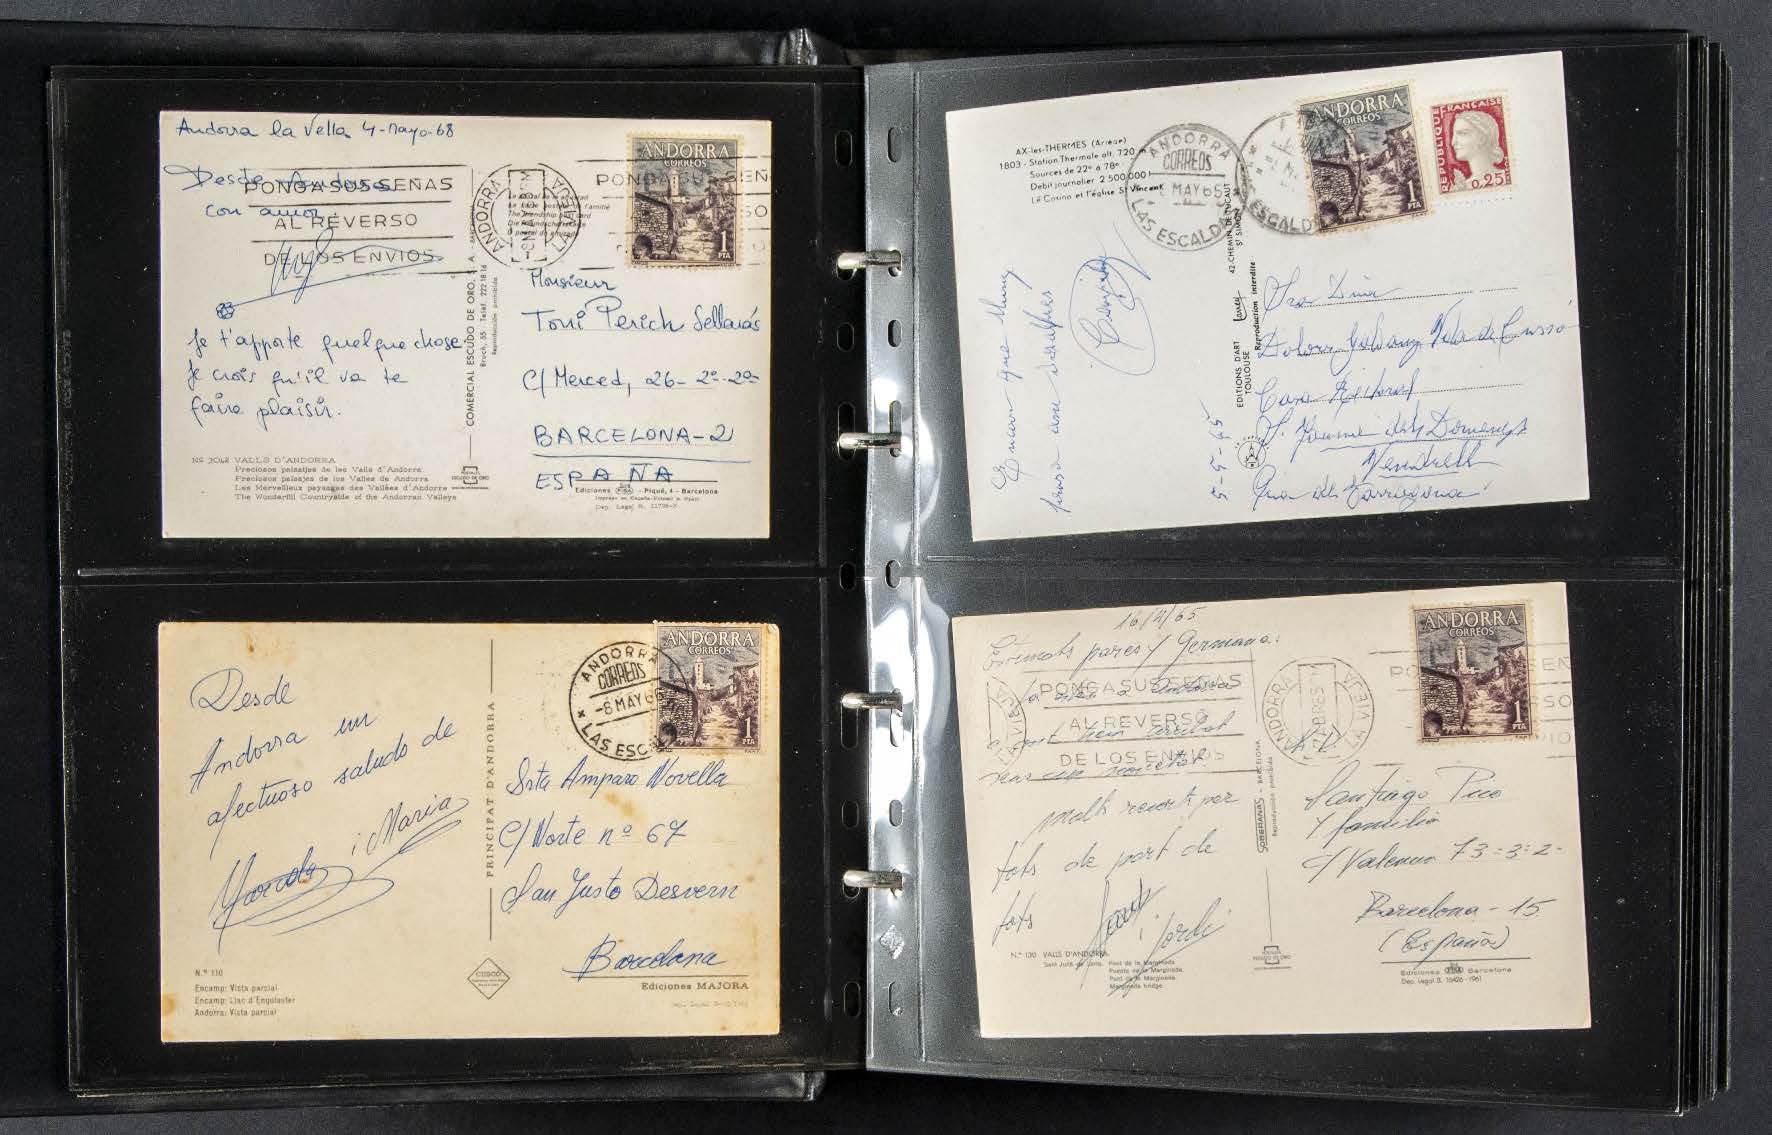 Andorra la Vella 4-Mayo-68
Desde Andorra
con amor
PONGA SUS SEÑAS
AL REVERSO
DE LOS ENVIOS
Je t'apporte quelque chose.
Je crois qu'il va te
faire plaisir.
ANDORRA
LA VIEJA
ANDORRA
CORREOS
1
PTA
Monsieur
Toni Perich Sellarás
C/ Merced, 26-2º-2ª
BARCELONA-2
ESPAÑA
COMERCIAL ESCUDO DE ORO, S. A.
Bruch, 55 - Telef. 222 18 16
Reproducción prohibida
Nº 3048 VALLS D'ANDORRA
Preciosos paisatjes de les Valls d'Andorra
Preciosos paisajes de los Valles de Andorra
Les Merveilleux paysages des Vallées d'Andorre
The Wonderfill Countryside of the Andorran Valleys
Ediciones FISA - Piqué, 4 - Barcelona
Dep. Legal B. 11796-X
Desde
Andorra un
afectuoso saludo de
i Maria
ANDORRA
CORREOS
-8 MAY 6
LAS ESC
ANDORRA
CORREOS
1
PTA
Srta Amparo Novella
C/ Norte nº 67
San Justo Desvern
Barcelona
PRINCIPAT D'ANDORRA
N.º 110
Encamp: Vista parcial
Encamp: Llac d'Engolaster
Andorra: Vista parcial
CUSCO
Ediciones MAJORA
AX-les-THERMES (Ariège)
1803 - Station Thermale alt. 720 m
Sources de 22° à 78°
Débit journalier 2.500.000 l
Le Casino et l'église St Vincent
ANDORRA
CORREOS
MAY 65
LAS ESCALDAS
ESCALD
ANDORRA
CORREOS
1
PTA
REPUBLIQUE FRANCAISE
0,25
EDITIONS D'ART
TOULOUSE
Reproduction interdite
42, CHEMIN DE TUCAUT
ST SIMON
5-5-65
Sra Dina
Casa Rectoral
S. Jaume dels Domenys
Vendrell
16/4/65
Estimats pares y Germana:
PONGA SUS SEÑAS
AL REVERSO
DE LOS ENVIOS
molts records per
tots de part de
tots
i Jordi
ANDORRA
LA VIEJA
ABR 65
ANDORRA
CORREOS
1
PTA
Santiago Pico
y familia
C/ Valencia 73-3-2-
Barcelona - 15
(España)
SOBERANAS - BARCELONA
Reproducción prohibida
N.º 130 VALLS D'ANDORRA
Pont de la Margineda
Puente de la Margineda
Pont de la Margineda
Margineda bridge
Ediciones FISA Barcelona
Dep. Legal B. 16426-1961